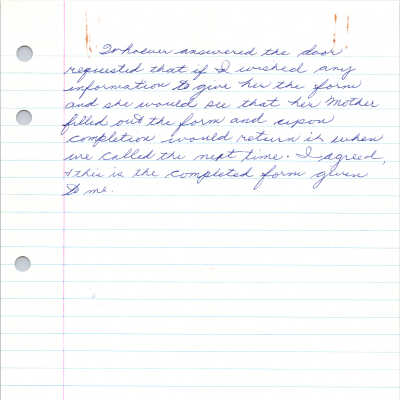 Whoever answered the door
requested that if I wished any
information to give her the form
and she would see that her Mother
filled out the form and upon
completion would return it when
we called the next time. I agreed,
& this is the completed form given
to me.